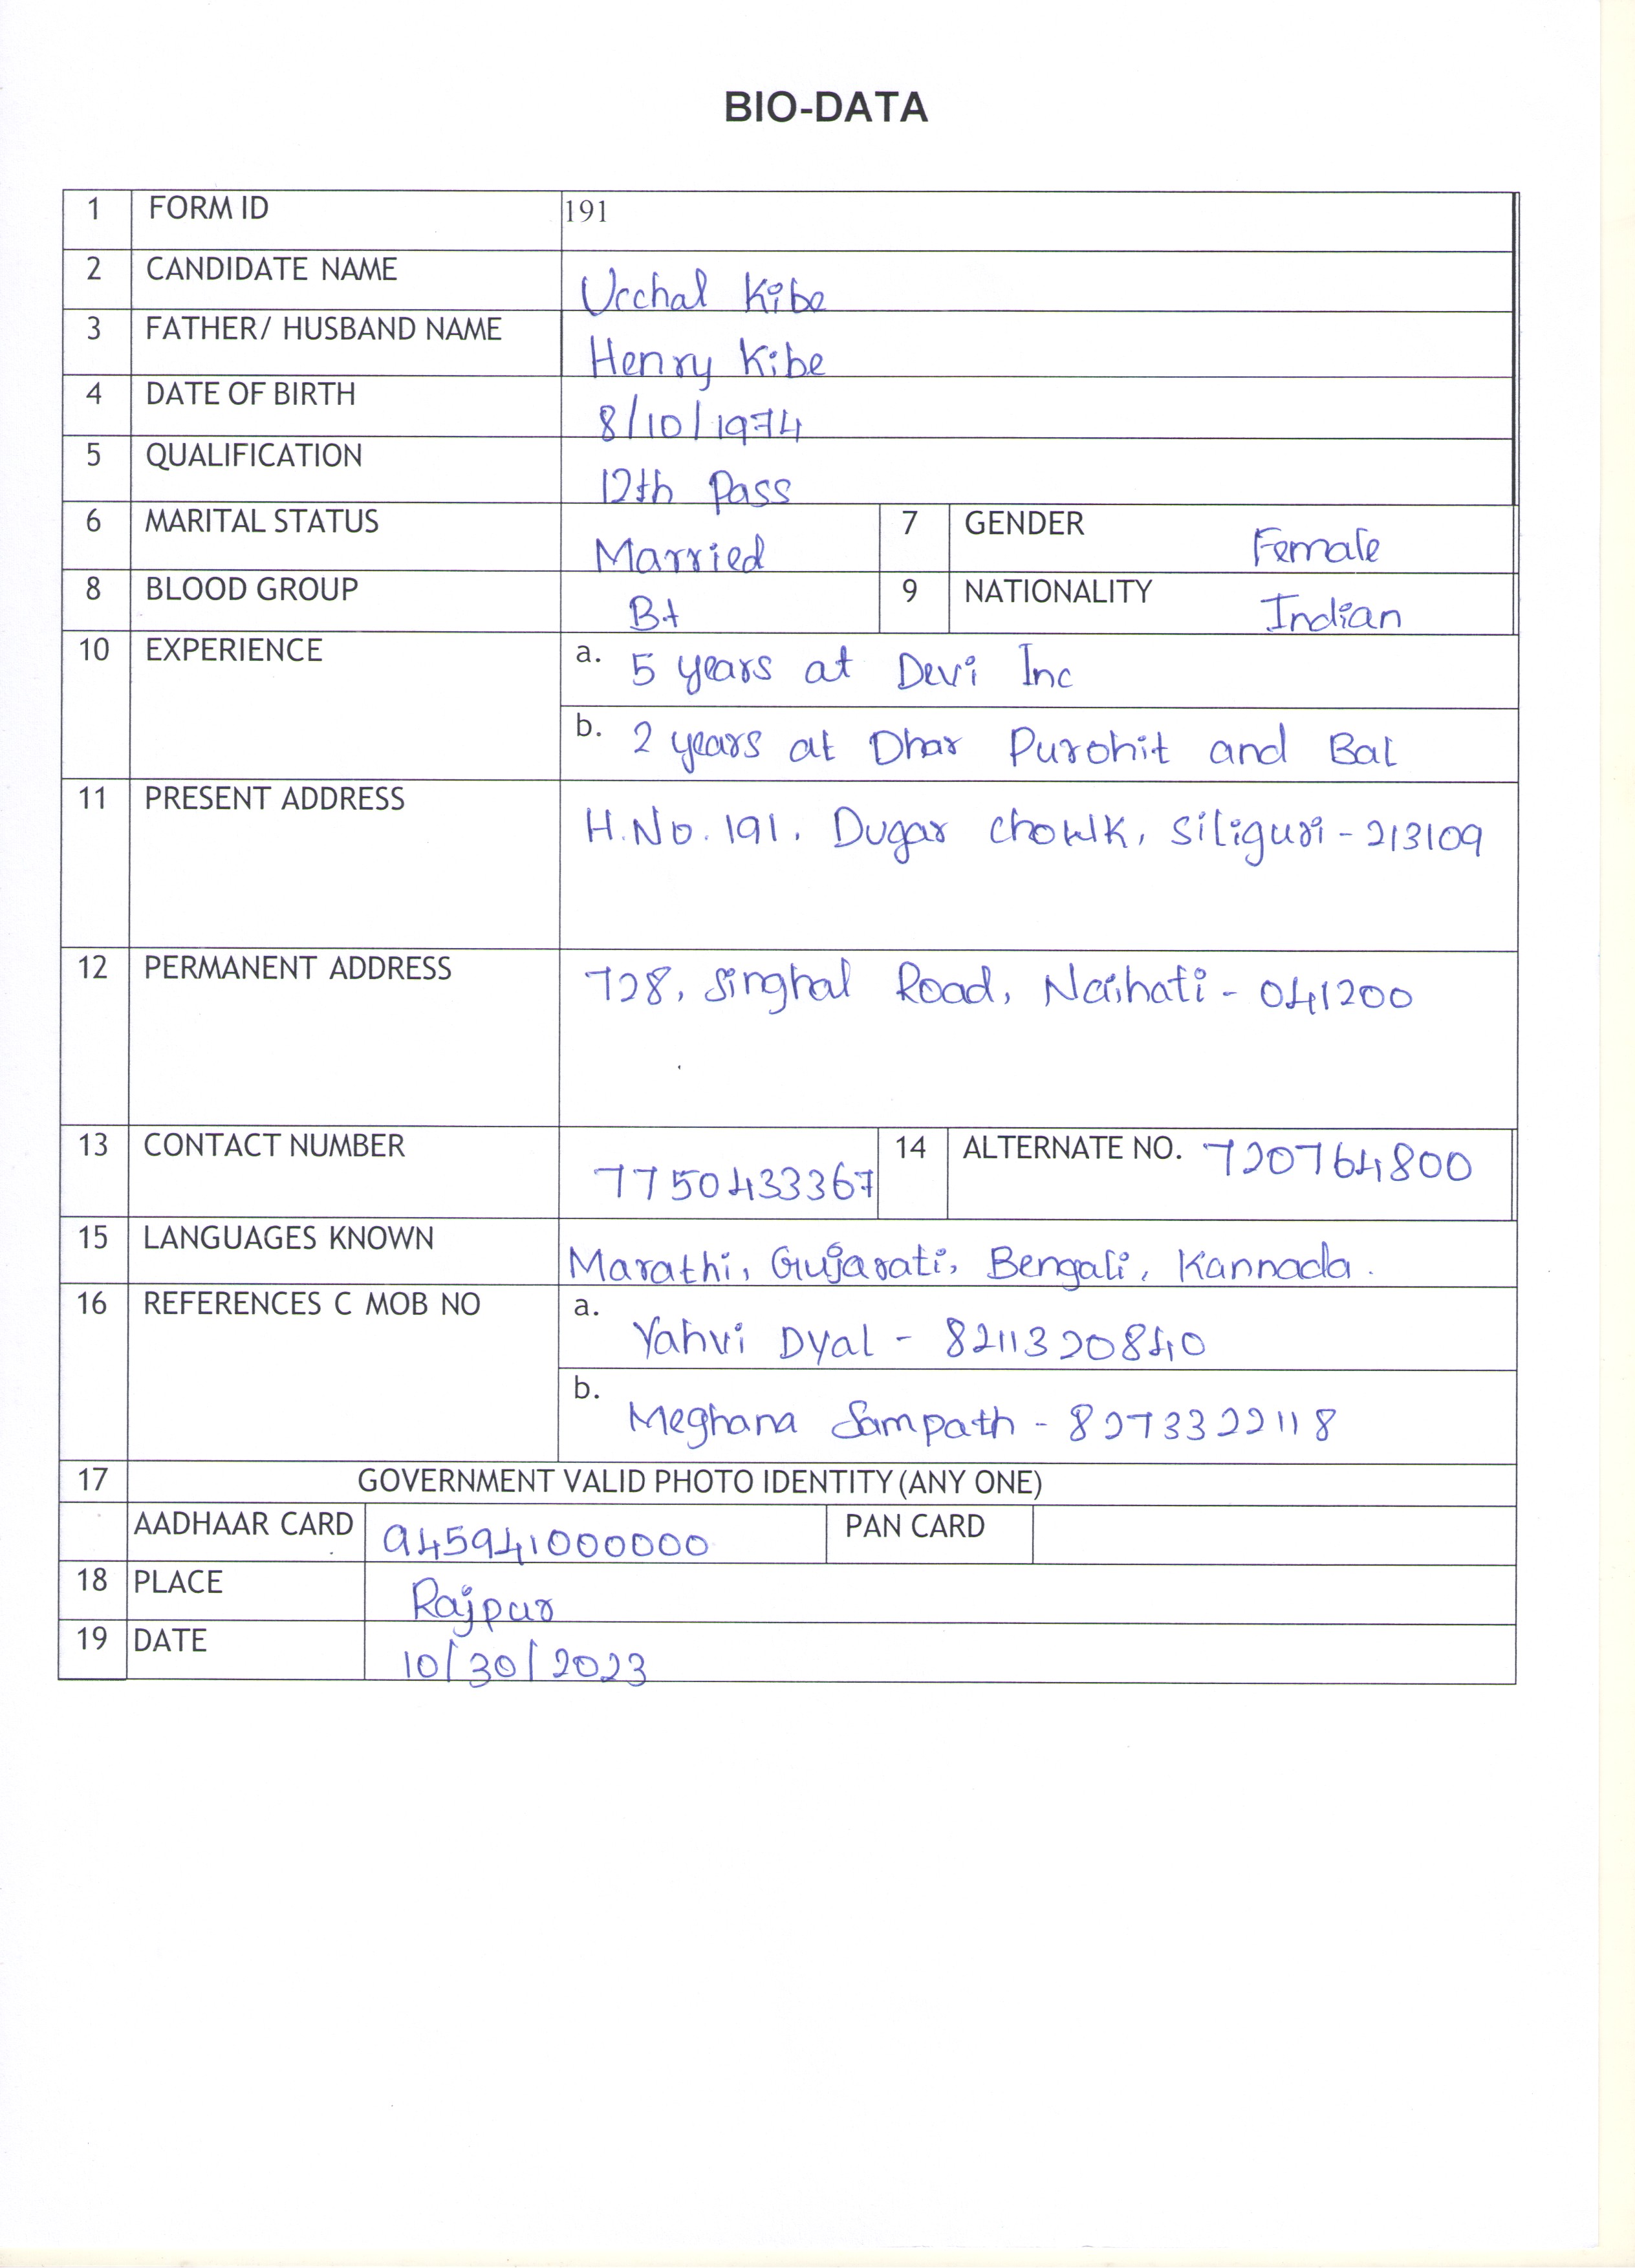 BIO-DATA
1 FORM ID 191
2 CANDIDATE NAME Urchal Kibe
3 FATHER/ HUSBAND NAME Henry Kibe
4 DATE OF BIRTH 8/10/1974
5 QUALIFICATION 12th Pass
6 MARITAL STATUS Married 7 GENDER Female
8 BLOOD GROUP B+ 9 NATIONALITY Indian
10 EXPERIENCE a. 5 years at Devi Inc
b. 2 years at Dhar Purohit and Bal
11 PRESENT ADDRESS H.No. 191, Dugar chowk, Siliguri - 213109
12 PERMANENT ADDRESS 728, Singhal Road, Naihati - 041200
13 CONTACT NUMBER 7750433367 14 ALTERNATE NO. 720764800
15 LANGUAGES KNOWN Marathi, Gujarati, Bengali, Kannada.
16 REFERENCES C MOB NO a. Yahvi Dyal - 8211320840
b. Meghana Sampath - 8273322118
17 GOVERNMENT VALID PHOTO IDENTITY (ANY ONE)
AADHAAR CARD 945941000000 PAN CARD
18 PLACE Rajpur
19 DATE 10/30/2023